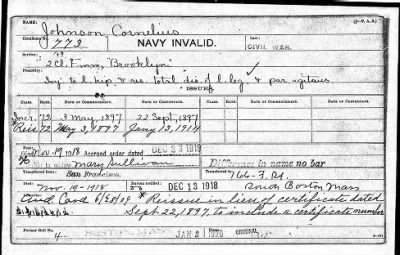 NAME:
Johnson, Cornelius
Certificate No.
773
NAVY INVALID.
CIVIL WAR.
Service:
2 Cl. Fmn., "Brooklyn"
Disability:
Inj. to l. hip & res. total dis. of l. leg & par. agitans
ISSUES
CLASS. RATE. DATE OF COMMENCEMENT. DATE OF CERTIFICATE.
CLASS. RATE. DATE OF COMMENCEMENT. DATE OF CERTIFICATE.
Incr. 72 3 May, 1897 22 Sept, 1897
Reiss 72 May 3, 1897 Jany 13, 1914
Nov. 19, 1918 Accrued order dated DEC 13 1918
Mary Sullivan Difference in name no bar
San Francisco 766 F. St.
Nov. 19-1918 DEC 13 1918 South Boston Mass
Reissue in lieu of certificate dated
Sept 22, 1897, to include a certificate number
4 BOSTON MASS JAN 2 1920 ORIGINAL